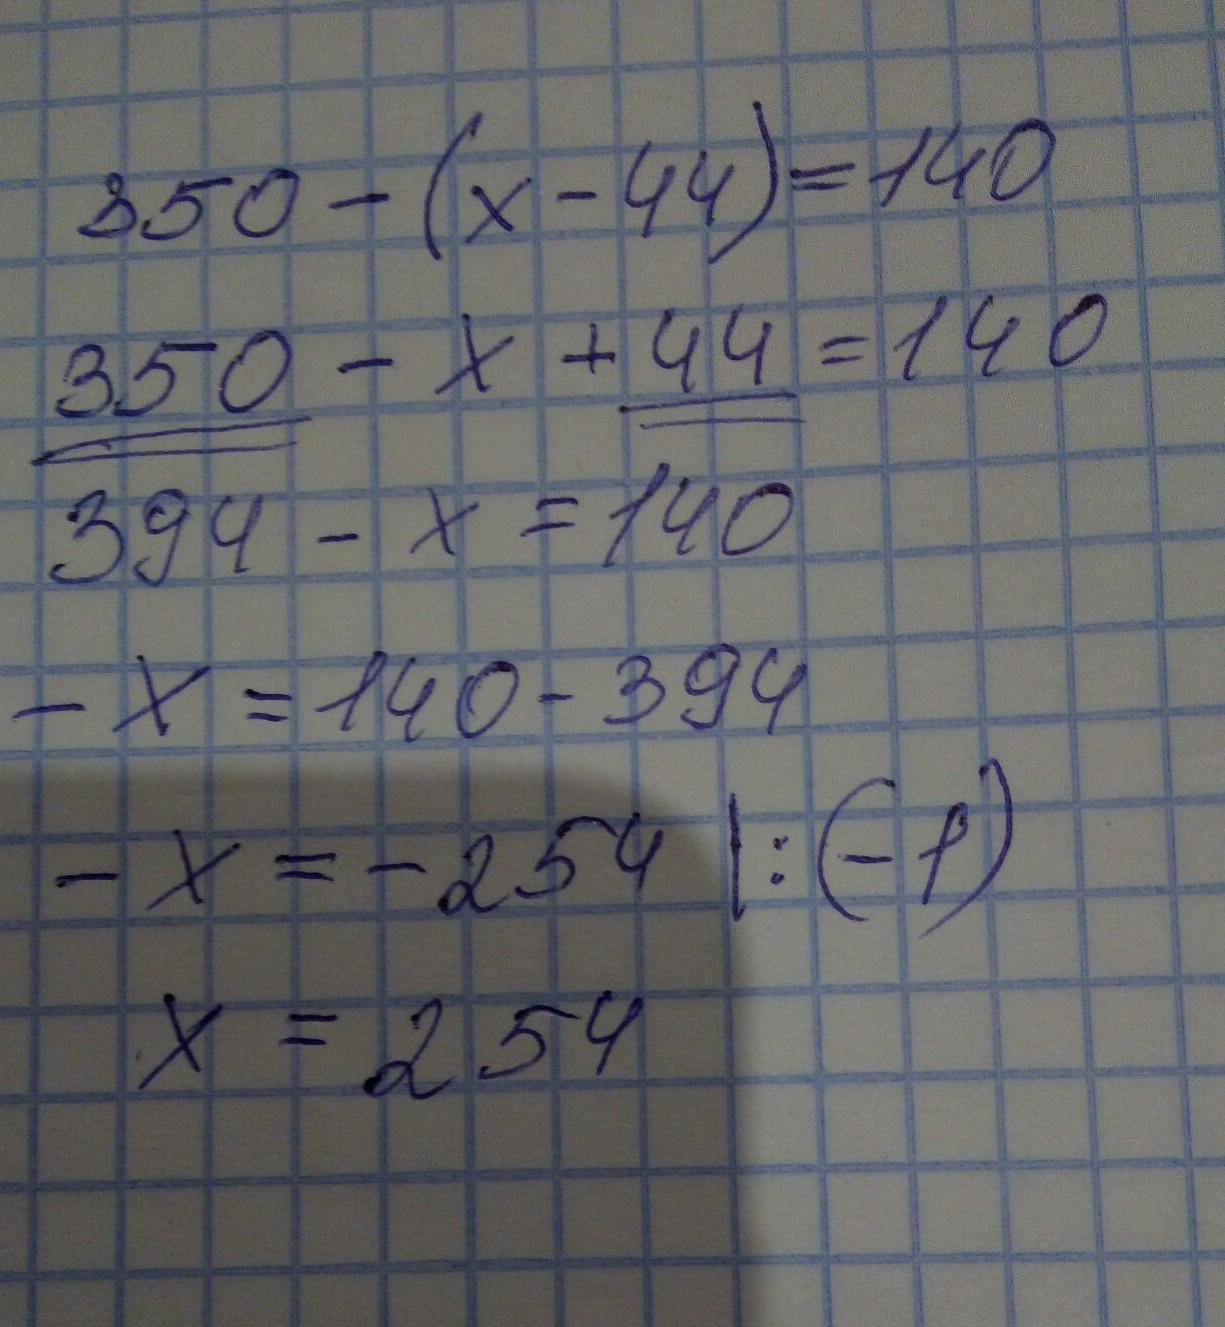 350 - (x - 44) = 140
350 - x + 44 = 140
394 - x = 140
- x = 140 - 394
- x = - 254 |: (- 1)
x = 254